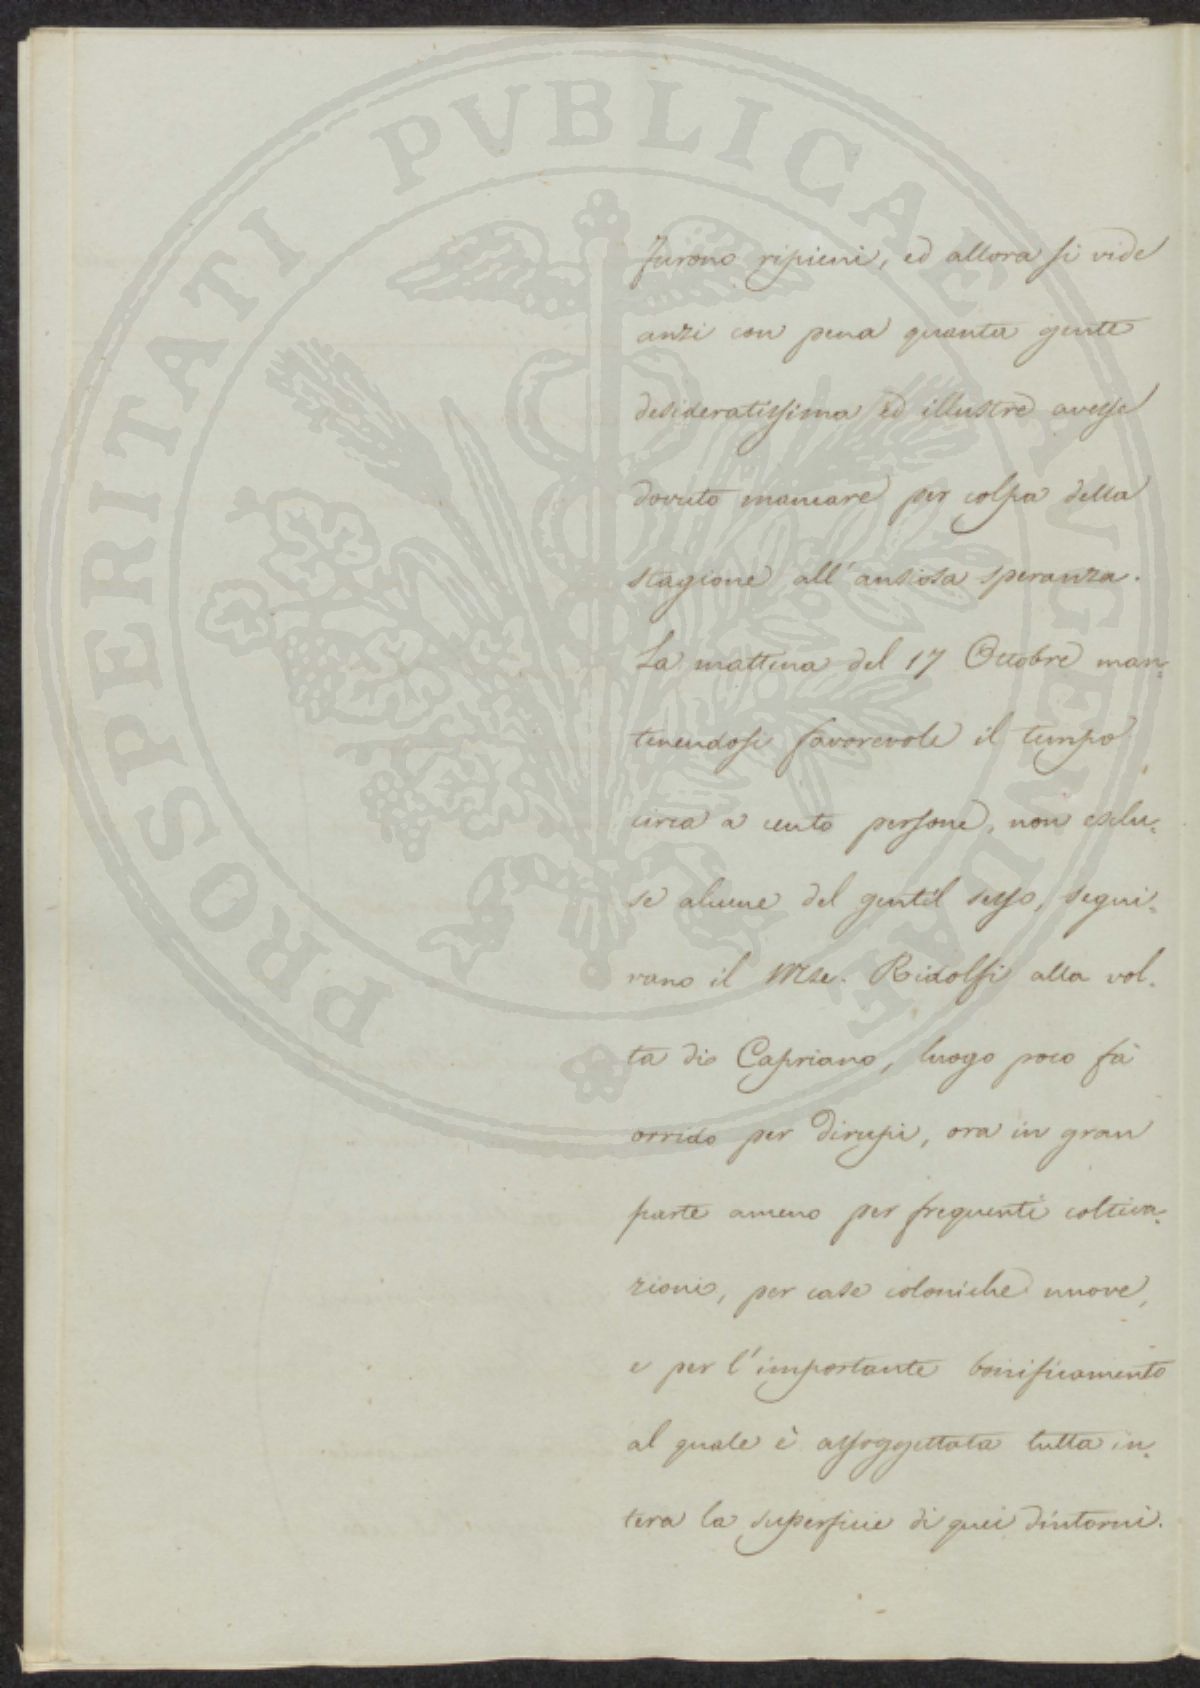 PROSPERITATI PVBLICAE AVGENDAE
furono ripieni, ed allora si vide
anzi con pena quanta gente
desideratissima ed illustre avesse
dovuto mancare per colpa della
stagione all'ansiosa speranza.
La mattina del 17 Ottobre man-
tenendosi favorevole il tempo
circa a cento persone, non esclu-
se alcune del gentil sesso, segui-
rano il Mse. Ridolfi alla vol-
ta di Capriano, luogo poco fà
orrido per dirupi, ora in gran
parte ameno per frequenti coltiva-
zioni, per case coloniche nuove,
e per l'importante bonificamento
al quale è assoggettata tutta in-
tera la superficie di quei dintorni.